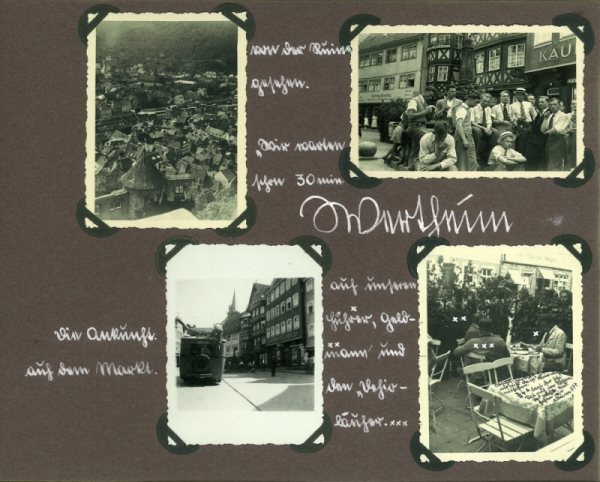 von der Ruine
gesehen.
KAU
„Wir warten
schon 30 min
Wertheim
auf unseren
Führer, Geld-
mann und
den
läufer.xxx
Die Ankunft.
auf dem Markt.
xx
x
xxx